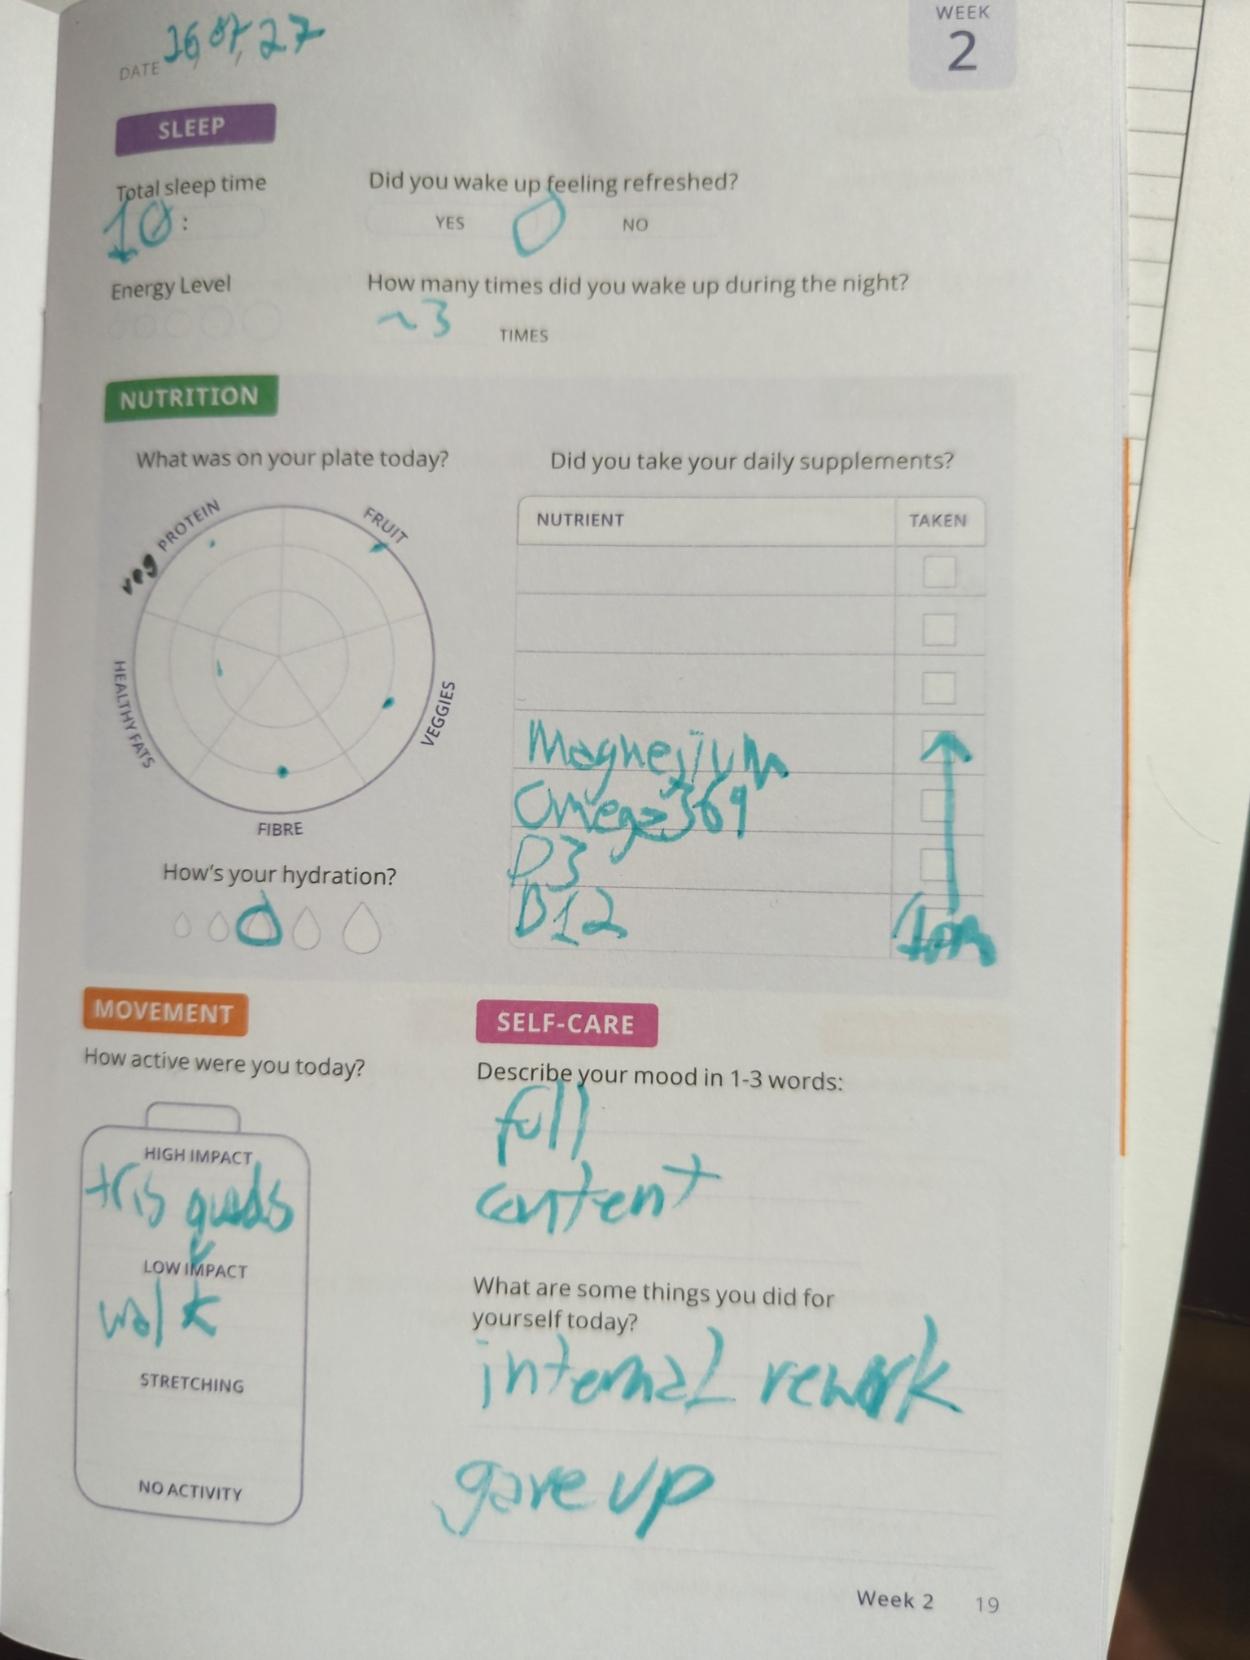 WEEK
2
DATE
SLEEP
Total sleep time
Did you wake up feeling refreshed?
10 :
YES
NO
Energy Level
How many times did you wake up during the night?
~3
TIMES
NUTRITION
What was on your plate today?
Did you take your daily supplements?
veg PROTEIN
FRUIT
VEGGIES
FIBRE
HEALTHY FATS
NUTRIENT
TAKEN
Magnesium
Omega 369
D3
B12
How's your hydration?
MOVEMENT
How active were you today?
HIGH IMPACT
tris quads
LOW IMPACT
walk
STRETCHING
NO ACTIVITY
SELF-CARE
Describe your mood in 1-3 words:
full
content
What are some things you did for
yourself today?
internal rework
gave up
Week 2 19